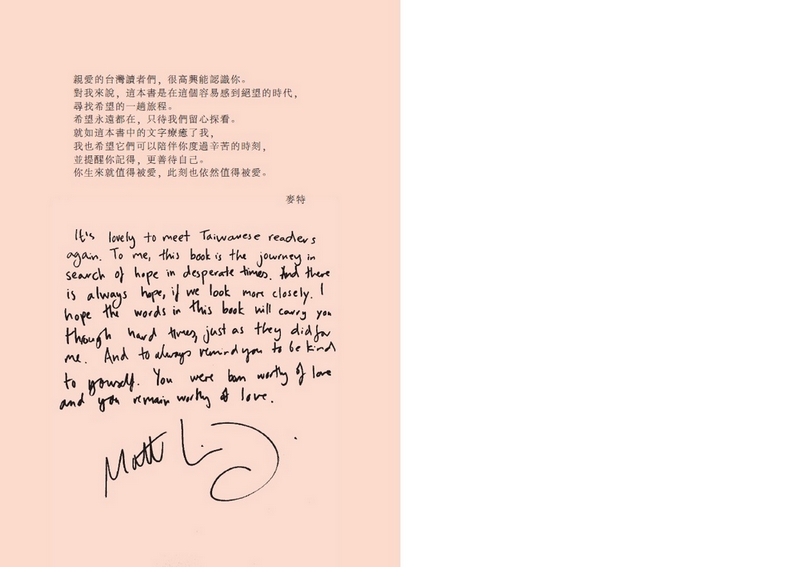 親愛的台灣讀者們，很高興能認識你。
對我來說，這本書是在這個容易感到絕望的時代，
尋找希望的一趟旅程。
希望永遠都在，只待我們留心探看。
就如這本書中的文字療癒了我，
我也希望它們可以陪伴你度過辛苦的時刻，
並提醒你記得，更善待自己。
你生來就值得被愛，此刻也依然值得被愛。
麥特
It's lovely to meet Taiwanese readers
again. To me, this book is the journey in
search of hope in desperate times. And there
is always hope, if we look more closely. I
hope the words in this book will carry you
though hard times, just as they did for
me. And to always remind you to be kind
to yourself. You were born worthy of love
and you remain worthy of love.
Matt